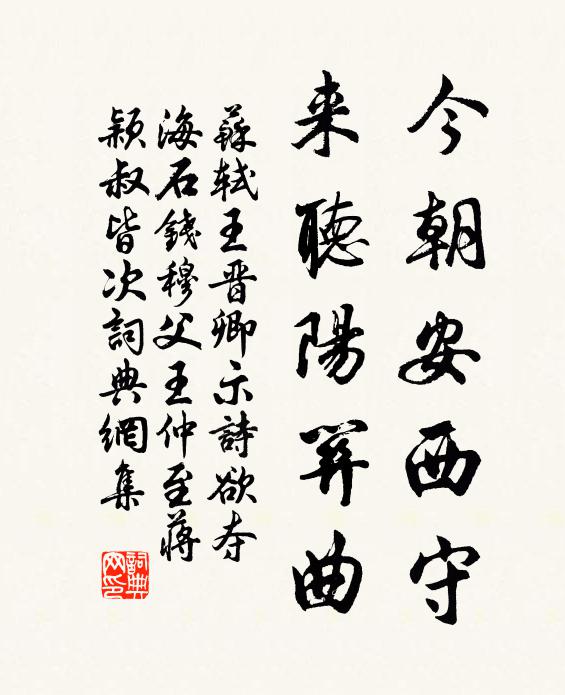 今朝安西守
来聽陽關曲
蘇軾王晋卿示詩欲夺
海石錢穆父王仲至蔣
穎叔皆次詞典網集
詞典网印